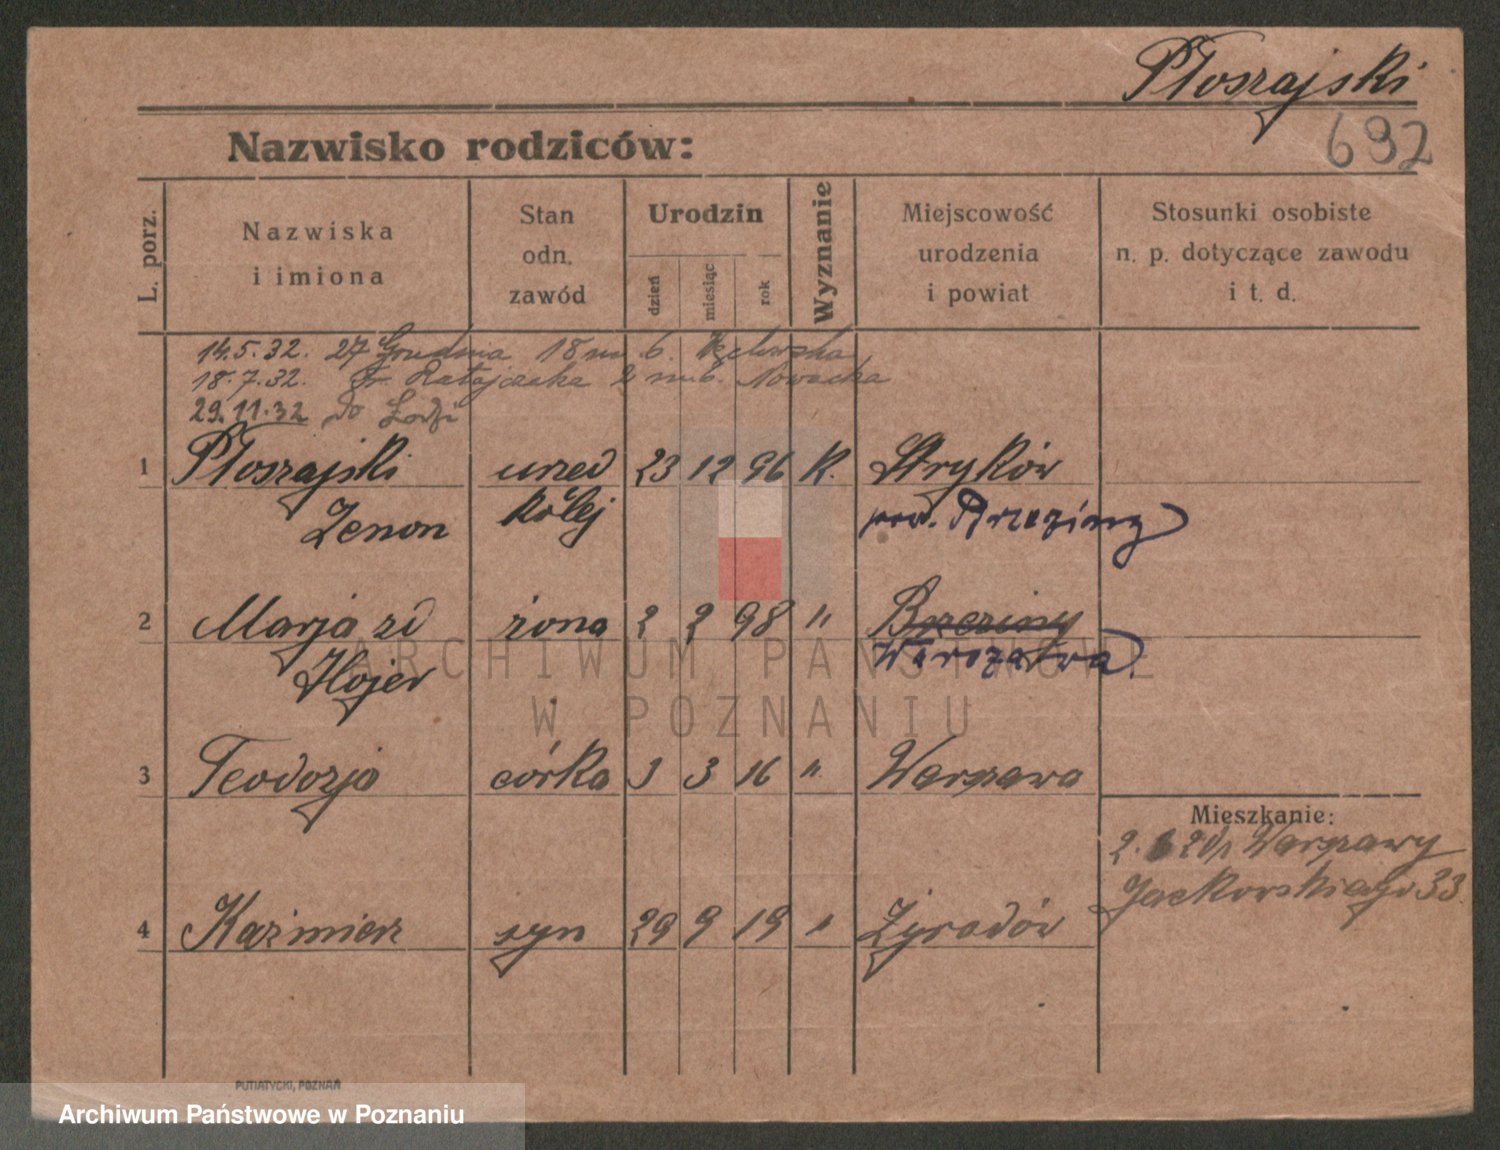 Płoszajski
692
Nazwisko rodziców:
L. porz.
Nazwiska
i imiona
Stan
odn.
zawód
Urodzin
dzień
miesiąc
rok
Wyznanie
Miejscowość
urodzenia
i powiat
Stosunki osobiste
n. p. dotyczące zawodu
i t. d.
14.5.32. 27 Grudnia 18 m 6.
18.7.32. Fr. Ratajczaka 2 m. 6. Nowacka
29.11.32 do Łodzi
1 Płoszajski urzed 23 12 96 K. Stryków
Zenon kolej pow. Brzeziny
2 Marja zd żona 2 2 98 " Brzeziny
Hojer Warszawa
3 Teodozja córka 3 3 16 " Warszawa
Mieszkanie:
Warszawy
Jackowskiego 33
4 Kazimierz syn 29 9 19 " Żyradów
ARCHIWUM PAŃSTWOWE
W POZNANIU
PUTIATYCKI, POZNAŃ
Archiwum Państwowe w Poznaniu